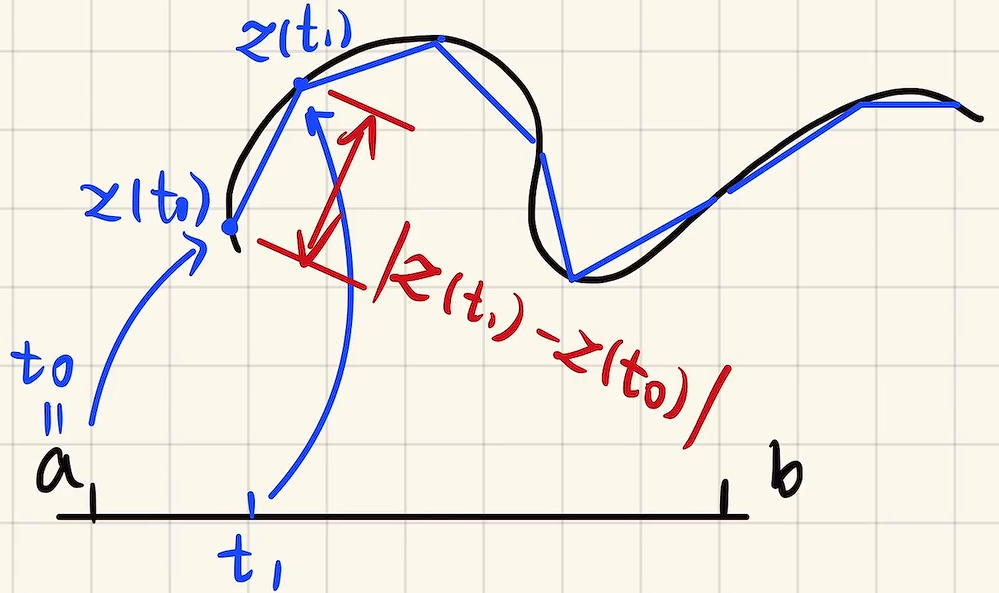 z(t₁)
z(t₀)
|z(t₁)-z(t₀)|
t₀
||
a
b
t₁